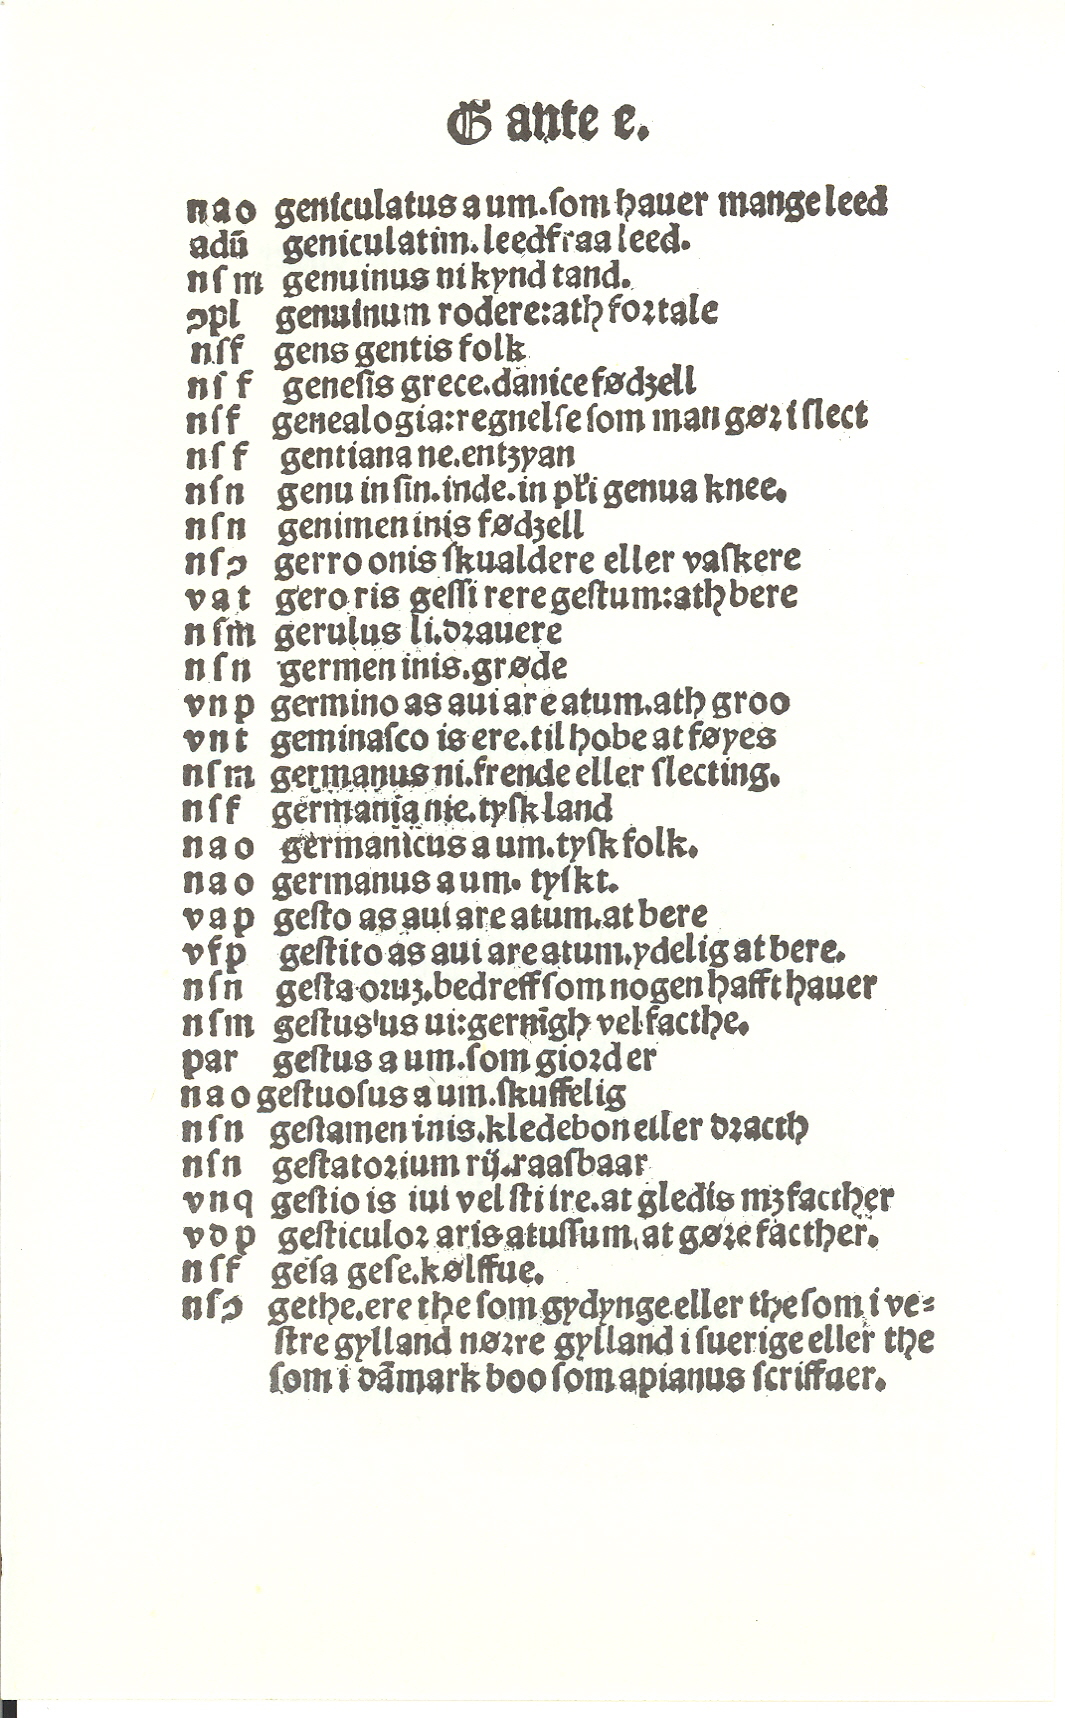 G ante e.
nao geniculatus a um.ſom hauer mange leed
adū geniculatim.leedfraa leed.
nſm genuinus ni kynd tand.
ɔpl genuinum rodere:ath foꝛtale
nſf gens gentis folk
nſf geneſis grece.danice fødʒell
nſf genealogia:regnelſe ſom man gøꝛ i ſlect
nſf gentiana ne.entʒyan
nſn genu in ſin.inde.in płi genua knee.
nſn genimen inis fødʒell
nſɔ gerro onis ſkualdere eller vaſkere
vat gero ris geſſi rere geſtum:ath bere
nſm gerulus li.dꝛauere
nſn germen inis.grøde
vnp germino as aui are atum.ath groo
vnt geminaſco is ere.til hobe at føyes
nſm germanus ni.frende eller ſlecting.
nſf germania nie.tyſk land
nao germanicus a um.tyſk folk.
nao germanus a um. tyſkt.
vap geſto as aui are atum.at bere
vfp geſtito as aui are atum.ydelig at bere.
nſn geſta oꝛuʒ.bedreff ſom nogen hafft hauer
nſm geſtus us ui:gernīgh vel facthe.
par geſtus a um.ſom gioꝛder
nao geſtuoſus a um.ſkuffelig
nſn geſtamen inis.kledebon eller dꝛacth
nſn geſtatoꝛium rij.raaſbaar
vnq geſtio is iui vel ſti ire.at gledis mʒ facther
vdp geſticuloꝛ aris atuſſum.at gøꝛe facther.
nſf geſa geſe.kølffue.
nſɔ gethe.ere the ſom gydynge eller the ſom i ve⸗
ſtre gylland nøꝛre gylland i ſuerige eller the
ſom i dāmark boo ſom apianus ſcriffuer.